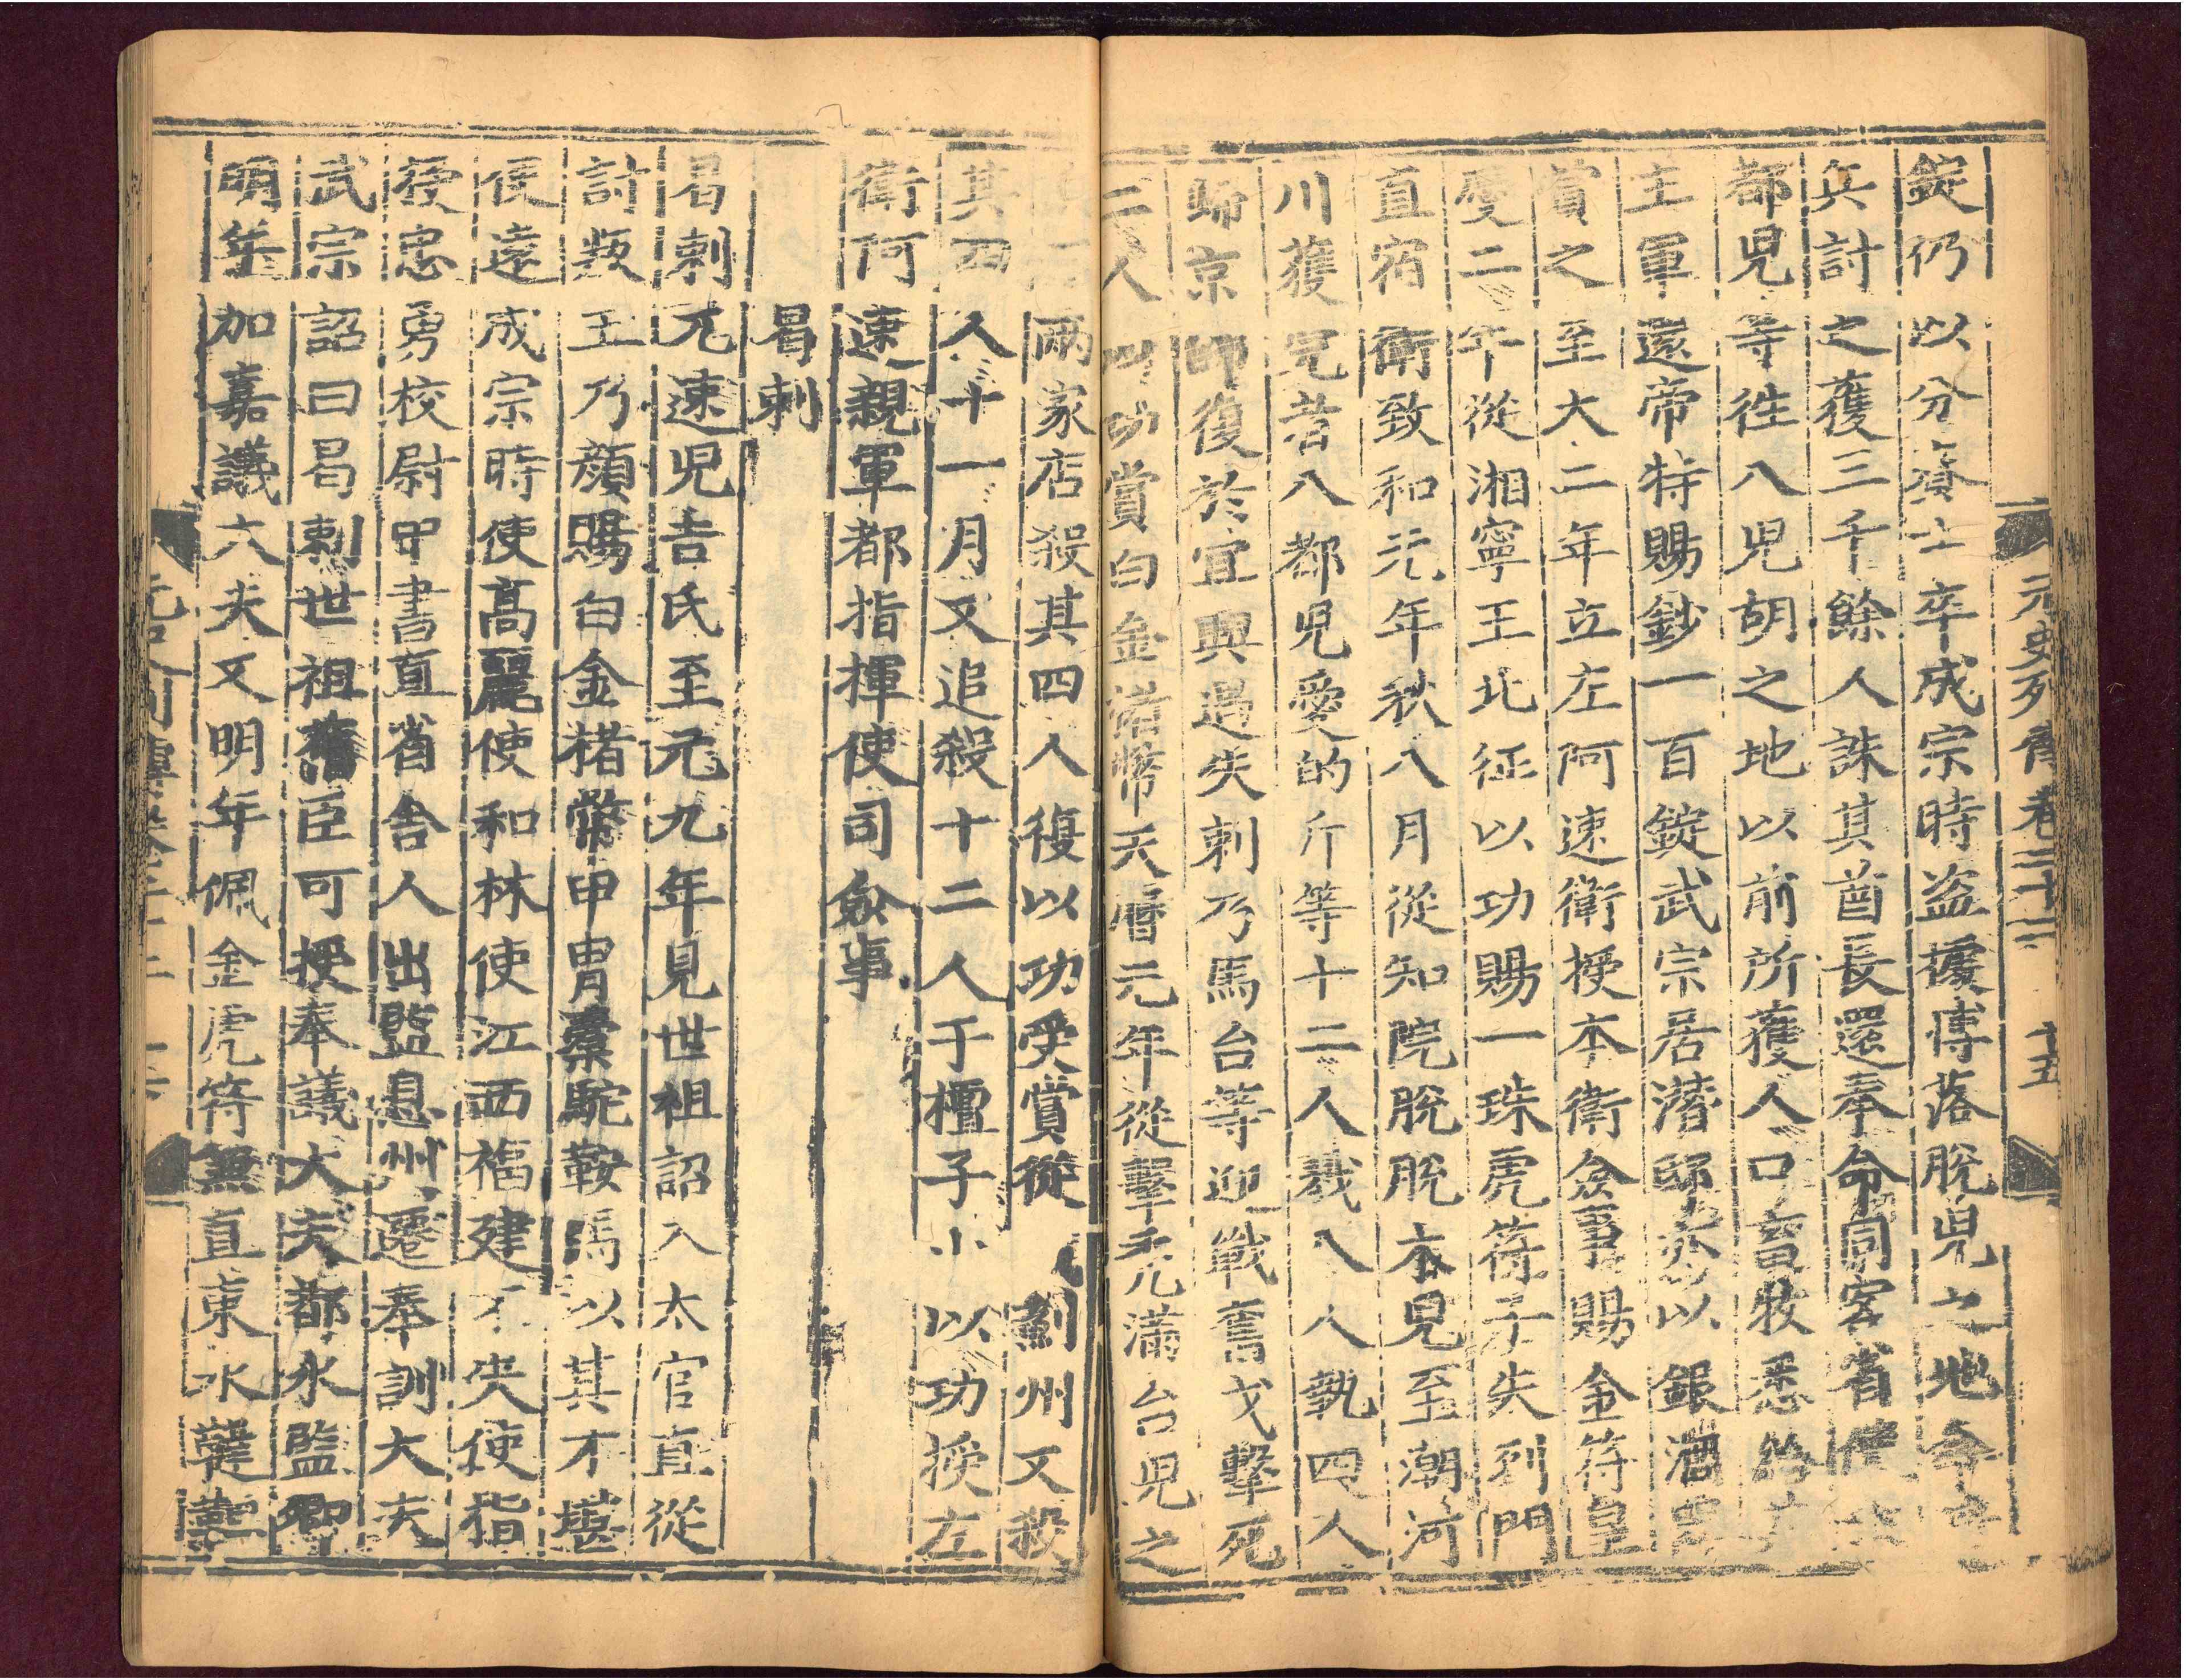 元史列傳卷二十二 十五
錠仍以分賚士卒成宗時盗據博落脫兒之地命
兵討之獲三千餘人誅其酋長還奉命同客省使
都兒等徃八兒胡之地以前所獲人口畜牧悉給
主軍還帝特賜鈔一百錠武宗居潜邸亦以銀酒
賞之至大二年立左阿速衛授本衛僉事賜金符皇
慶二年從湘寧王北征以功賜一珠虎符子失列門
直宿衛致和元年秋八月從知院脫脫木兒至潮河
川獲完者八都兒愛的斤等十二人戮八人執四人
歸京師復於宜興遇失剌乃馬台等迎戰奮戈擊死
二人以功賞白金楮幣天曆元年從擊禿滿台兒之
兩家店殺其四人復以功受賞從 薊州又殺
其四人十一月又追殺十二人于檀子小 以功授左
衛阿速親軍都指揮使司僉事
曷剌
曷剌兀速兒吉氏至元九年見世祖詔入太官直從
討叛王乃顏賜白金楮幣甲冑橐駝鞍馬以其才堪
使遠成宗時使高麗使和林使江西福建不失使指
授忠勇校尉中書直省舍人出監息州遷奉訓大夫
武宗詔曰曷剌世祖舊臣可授奉議大夫都水監卿
明年加嘉議大夫又明年佩金虎符無直東水韃靼